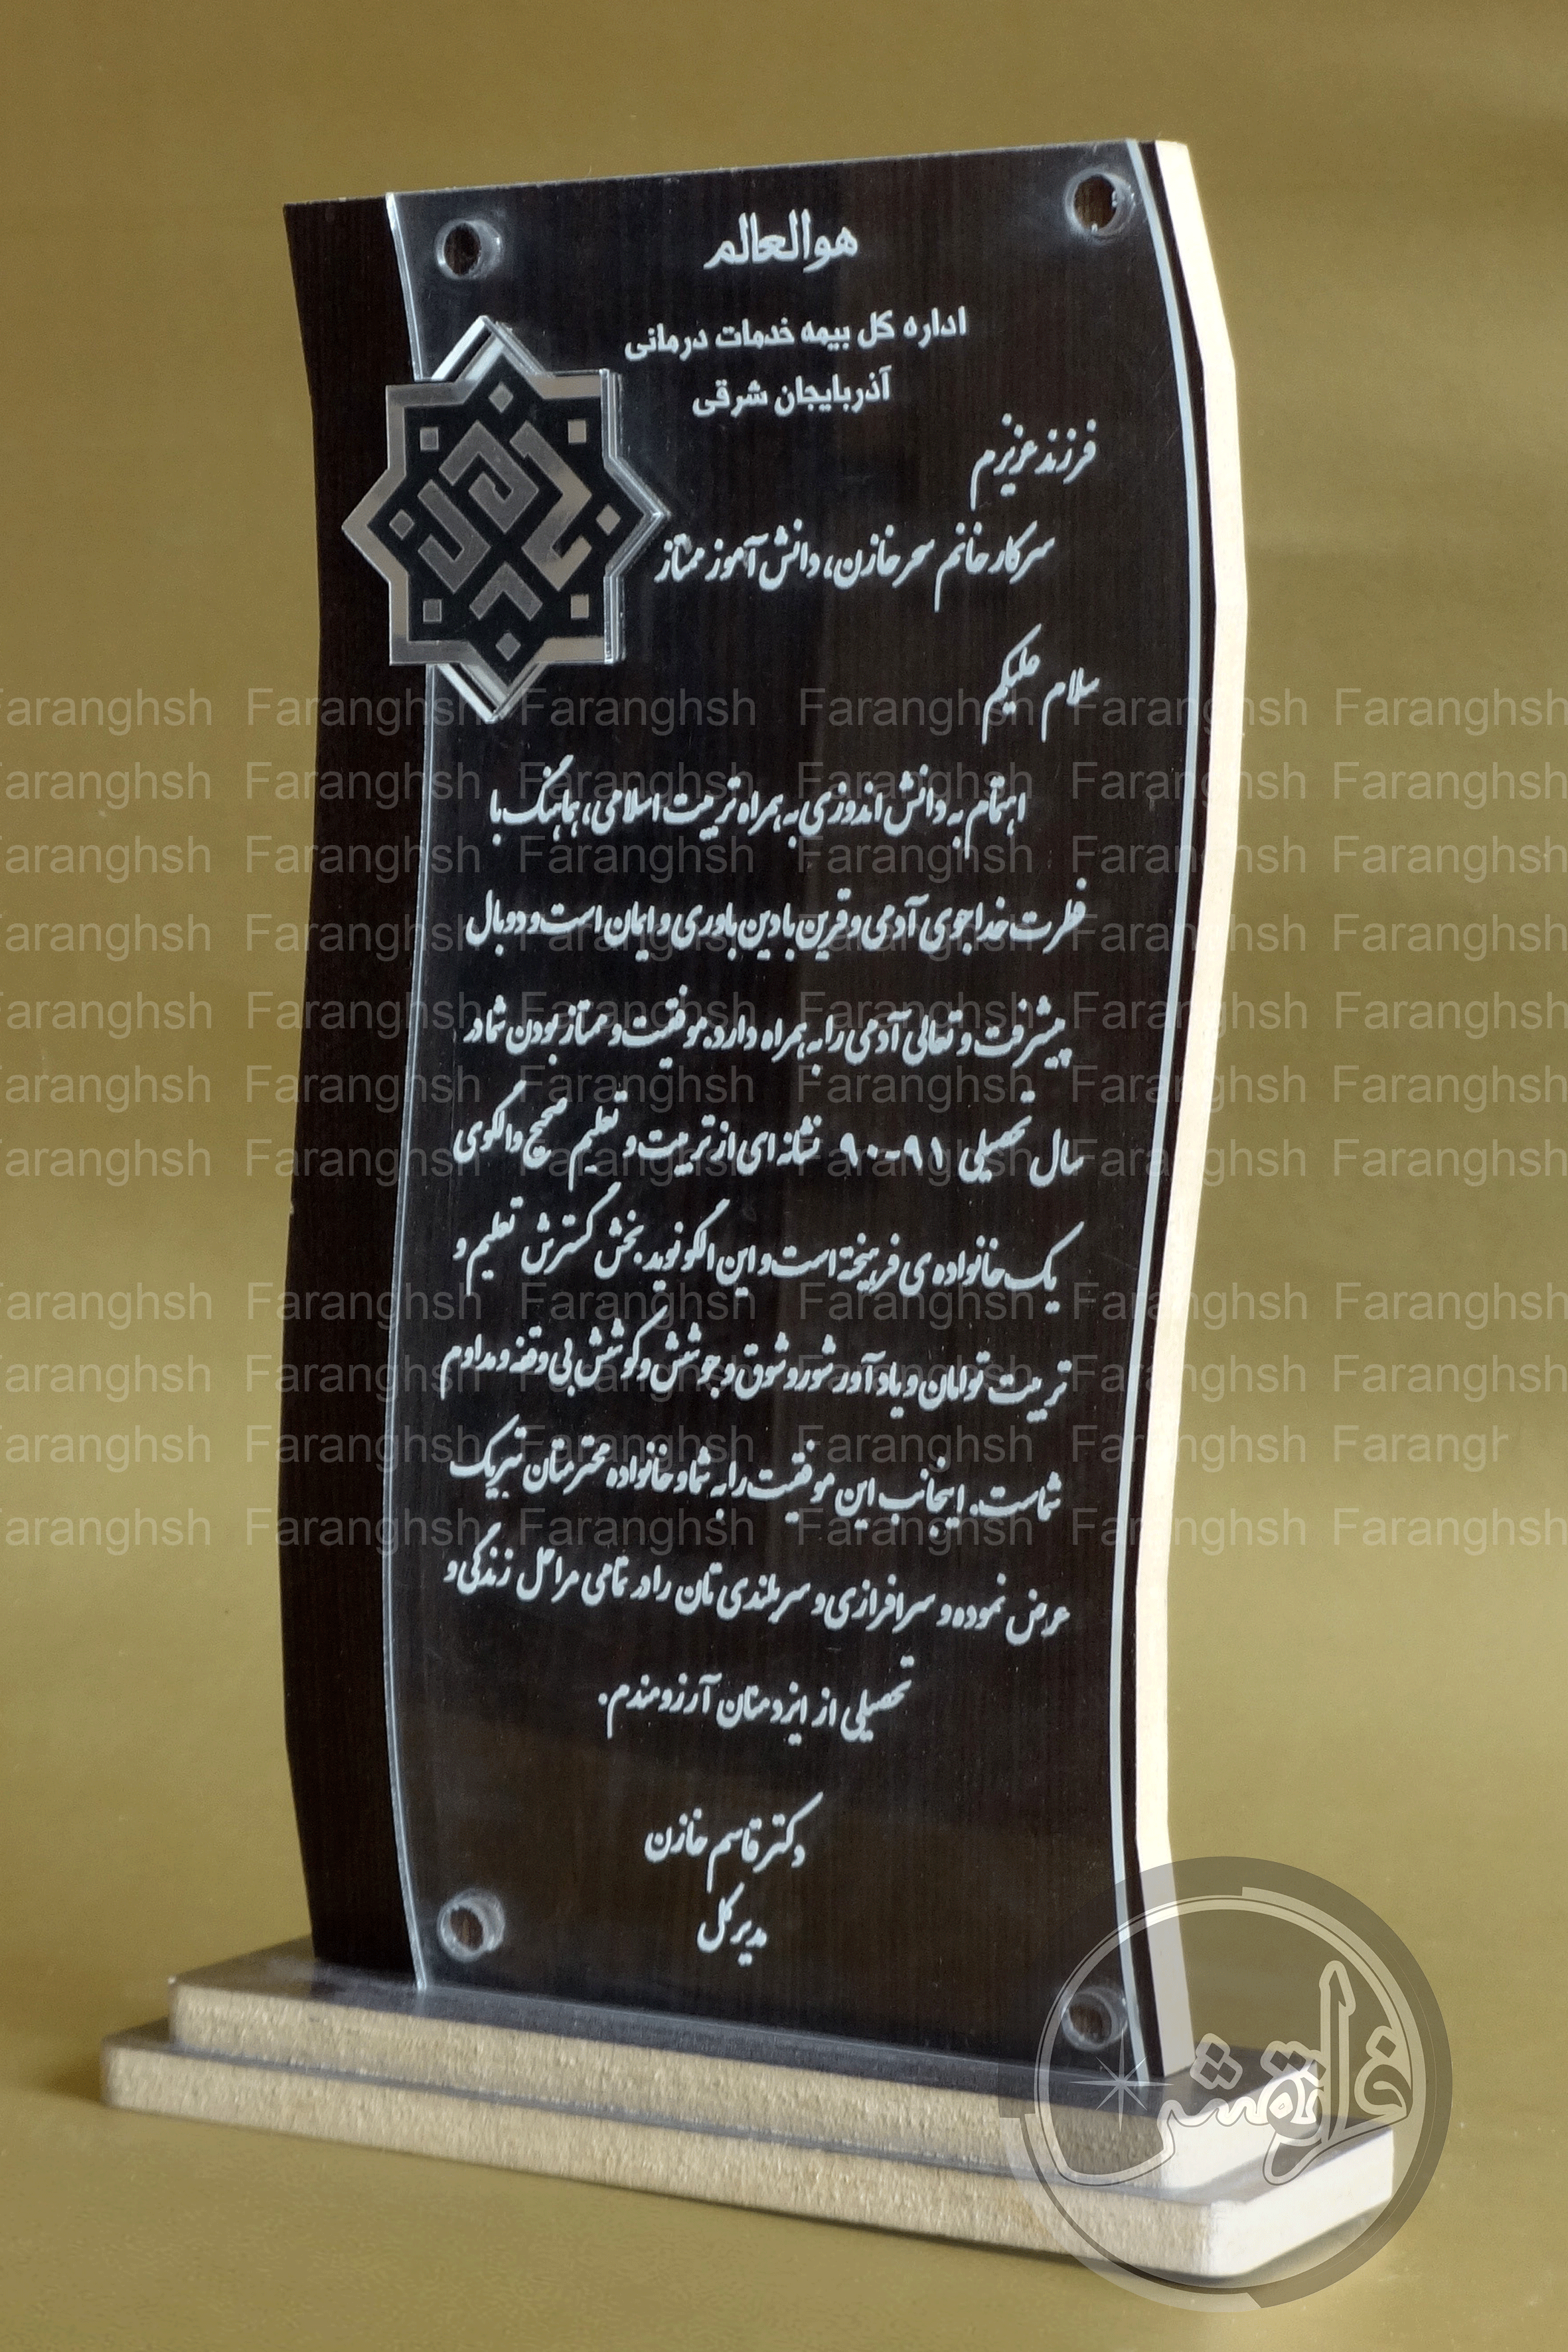 هوالعالم
اداره کل بیمه خدمات درمانی
آذربایجان شرقی
فرزند عزیزم
سرکار خانم سحر خازن، دانش آموز ممتاز
سلام علیکم
اهتمام به دانش اندوزی به همراه تربیت اسلامی، هماهنگ با
فطرت خداجوی آدمی و قرین با دین باوری و ایمان است و دو بال
پیشرفت و تعالی آدمی را به همراه دارد. موفقیت و ممتاز بودن شما در
سال تحصیلی ۹۱-۹۰ نشانه ای از تربیت و تعلیم صحیح و الگوی
یک خانواده ی فرهیخته است و این الگو نوید بخش گسترش تعلیم و
تربیت توامان و یاد آور شور و شوق و جوشش و کوشش بی وقفه و مداوم
شماست. اینجانب این موفقیت را به شما و خانواده محترمتان تبریک
عرض نموده و سرافرازی و سربلندی تان را در تمامی مراحل زندگی و
تحصیلی از ایزد منان آرزومندم.
دکتر قاسم خازن
مدیر کل
Faranghsh Faranghsh Faranghsh Faranghsh Faranghsh
Faranghsh Faranghsh Faranghsh Faranghsh Faranghsh
Faranghsh Faranghsh Faranghsh Faranghsh Faranghsh
Faranghsh Faranghsh Faranghsh Faranghsh Faranghsh
Faranghsh Faranghsh Faranghsh Faranghsh Faranghsh
Faranghsh Faranghsh Faranghsh Faranghsh Faranghsh
Faranghsh Faranghsh Faranghsh Faranghsh Faranghsh
Faranghsh Faranghsh Faranghsh Faranghsh Faranghsh
Faranghsh Faranghsh Faranghsh Faranghsh Faranghsh
Faranghsh Faranghsh Faranghsh Faranghsh Farangh
Faranghsh Faranghsh Faranghsh Faranghsh Faranghsh
فرانقش